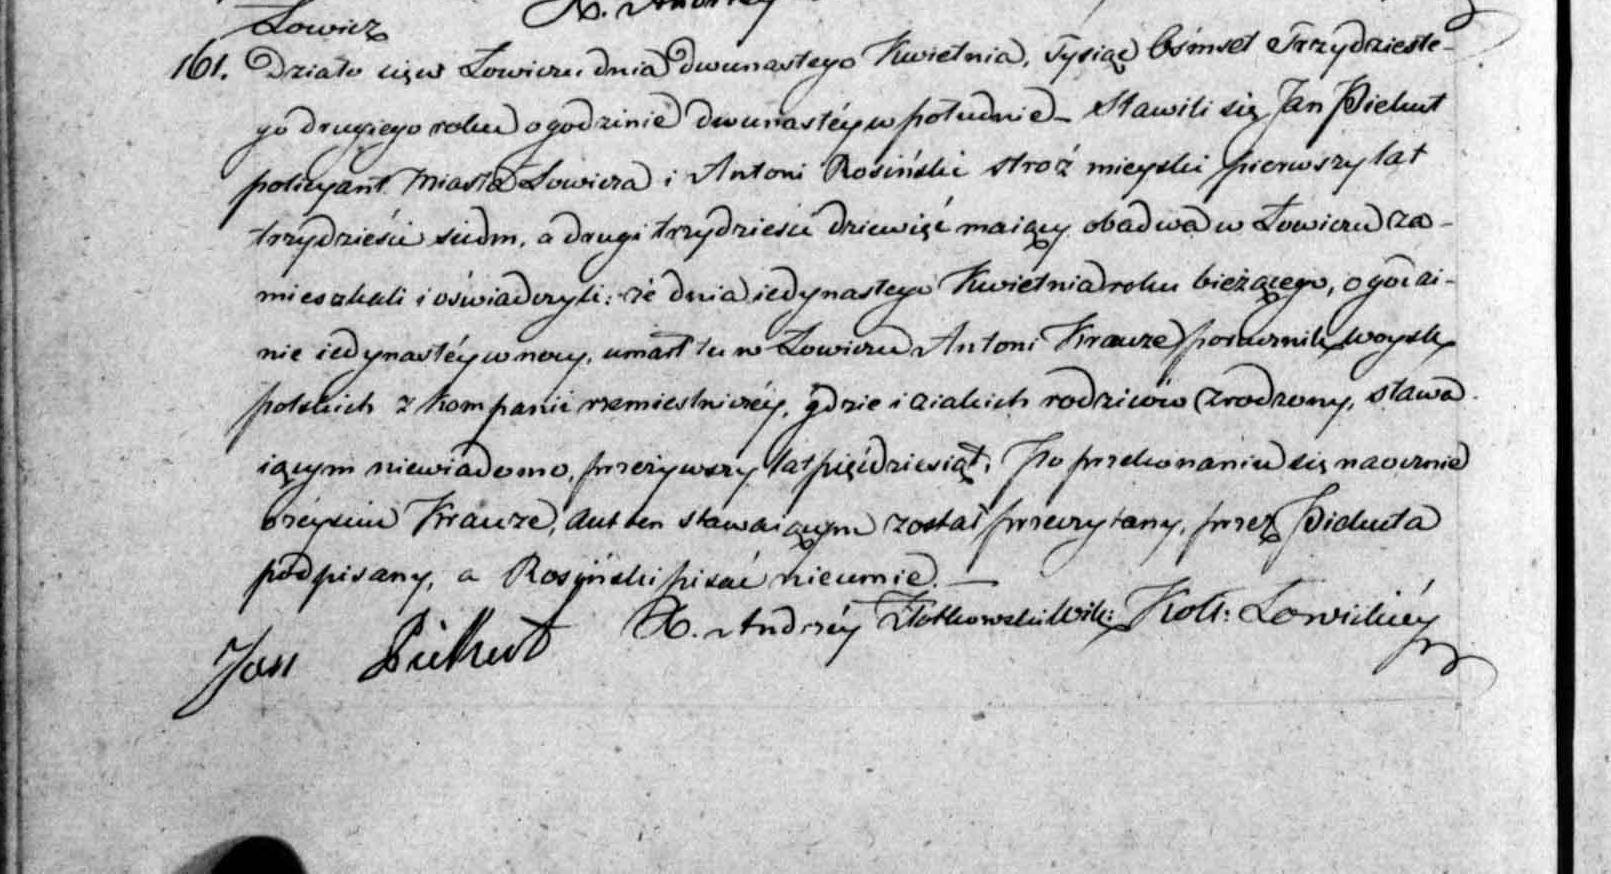 X. Andrzey
Łowicz
161. Działo się w Łowiczu dnia dwunastego Kwietnia, Tysiąc Ośmset Trzydzieste-
go drugiego roku o godzinie dwunastéy w południe – Stawili się Jan Piekut
policyant Miasta Łowicza i Antoni Rosiński stroż mieyski pierwszy lat
trzydzieści siedm, a drugi trzydzieści dziewięć maiący obadwa w Łowiczu za-
mieszkali i oświadczyli: że dnia iedynastego Kwietnia roku bieżącego, o godzi-
nie iedynastéy w nocy, umarł tu w Łowiczu Antoni Krauze porucznik woysk
polskich z kompanii rzemieslniczéy, gdzie i z iakich rodziców zrodzony, stawa-
iącym niewiadomo, przeżywszy lat pięćdziesiąt. Po przekonaniu się naocznie
o zeyściu Krauze, Akt ten stawaiącym został przeczytany, przez Piekuta
podpisany, a Rosiński pisać nieumie. —
X. Andrzéy Złotkowski Wik: Koll: Łowickiéy
Jan Piekut